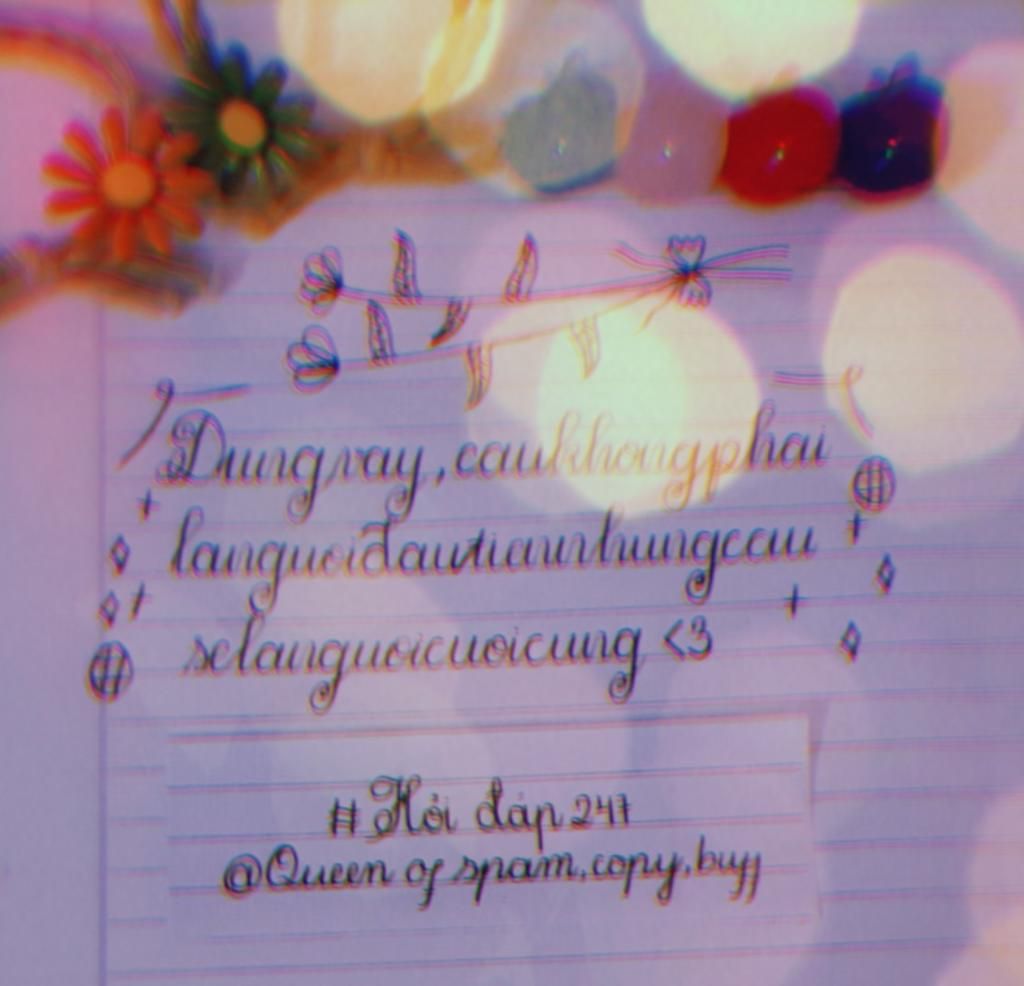 Dungvay, caukhongphai
languoiđautiannhungcau
selanguoicuoicung <3
# Hỏi đáp 247
@Queen of spam, copy, buff